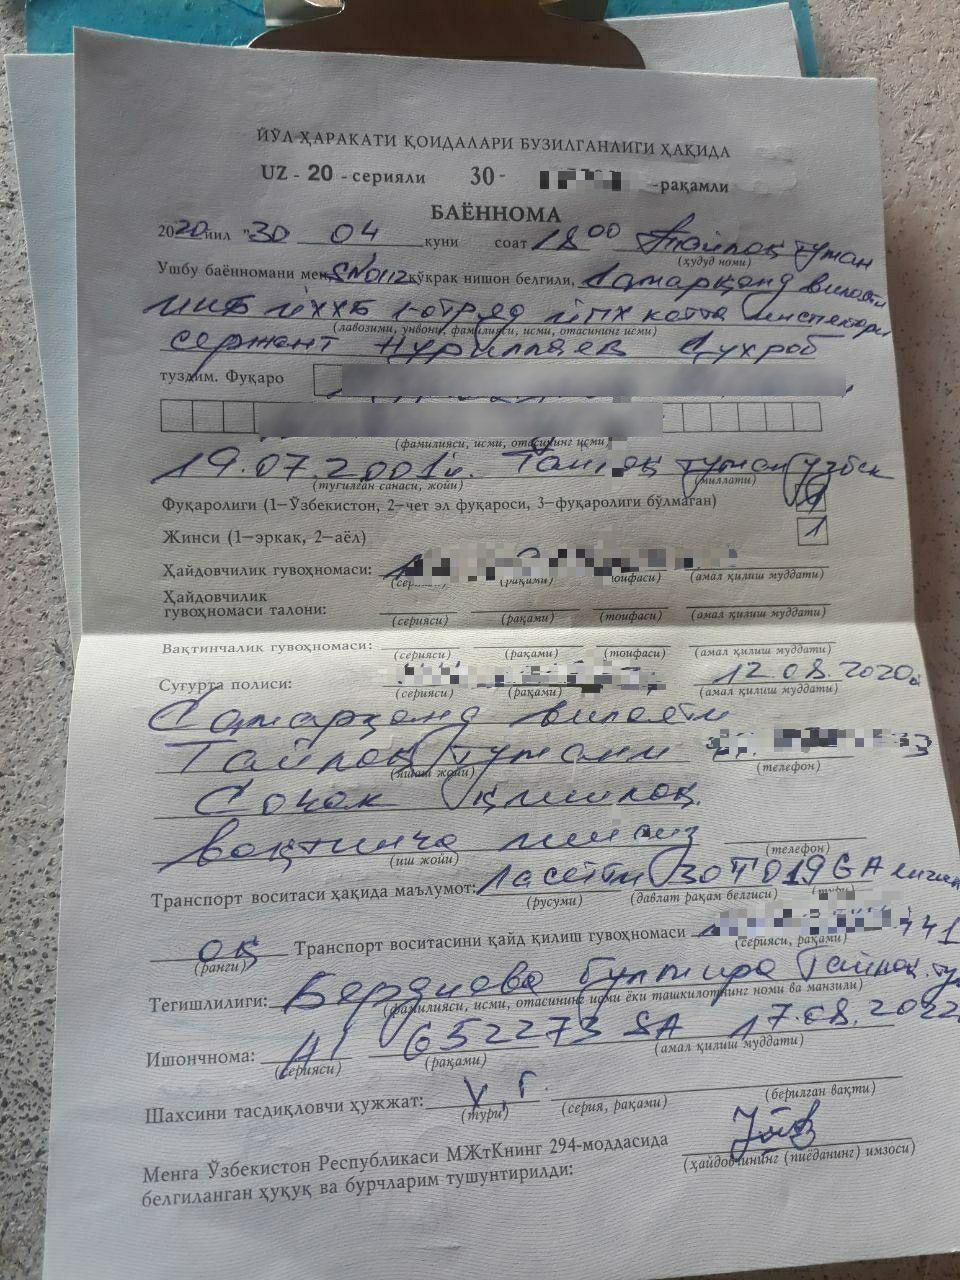 ЙЎЛ ҲАРАКАТИ ҚОИДАЛАРИ БУЗИЛГАНЛИГИ ҲАҚИДА
UZ - 20 - серияли 30- -рақамли
БАЁННОМА
2020 йил "30 04 куни соат 18 00 Тайлоқ туман
(ҳудуд номи)
Ушбу баённомани мен SN0112 кўкрак нишон белгили, Самарқанд вилояти
ИИБ ЙҲХБ 1-отряд ЙПХ катта инспектори
(лавозими, унвони, фамилияси, исми, отасининг исми)
сержант Нуриллаев Сухроб
туздим. Фуқаро
(фамилияси, исми, отасининг исми)
19.07.2001й. Тайлоқ туман ўзбек
(туғилган санаси, жойи) (миллати)
Фуқаролиги (1—Ўзбекистон, 2—чет эл фуқароси, 3—фуқаролиги бўлмаган) 1
Жинси (1—эркак, 2—аёл) 1
Ҳайдовчилик гувоҳномаси:
(рақами) (тоифаси) (амал қилиш муддати)
Ҳайдовчилик
гувоҳномаси талони:
(серияси) (рақами) (тоифаси) (амал қилиш муддати)
Вақтинчалик гувоҳномаси:
(серияси) (рақами) (тоифаси) (амал қилиш муддати)
Суғурта полиси: 12.08.2020
(серияси) (рақами) (амал қилиш муддати)
Самарқанд вилояти
Тайлоқ тумани
(яшаш жойи) (телефон)
Сочак қишлоқ
вақтинча ишсиз
(иш жойи) (телефон)
Транспорт воситаси ҳақида маълумот: Ласетти 30 T019GA
(русуми) (давлат рақам белгиси) (тури)
оқ Транспорт воситасини қайд қилиш гувоҳномаси 441
(ранги) (серияси, рақами)
Тегишлилиги: Бердиева Тайлоқ
(фамилияси, исми, отасининг исми ёки ташкилотнинг номи ва манзили)
Ишончнома: 652273 17.08.2022
(серияси) (рақами) (амал қилиш муддати)
Шахсини тасдиқловчи ҳужжат:
(тури) (серия, рақами) (берилган вақти)
Менга Ўзбекистон Республикаси МЖтКнинг 294-моддасида
белгиланган ҳуқуқ ва бурчларим тушунтирилди:
(ҳайдовчининг (пиёданинг) имзоси)